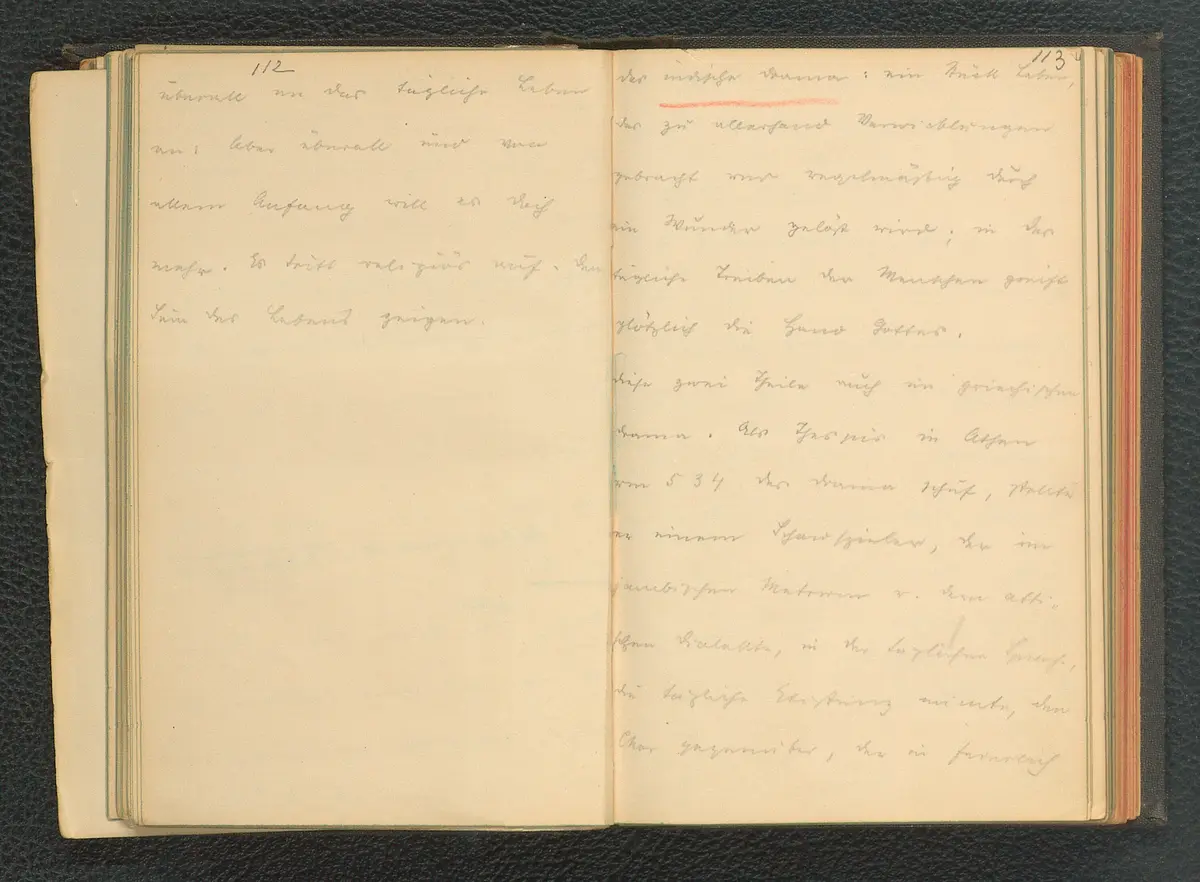 112
überall an das tägliche Leben
an: Aber überall und von
allem Anfang will es doch
mehr. Es tritt religiös auf. den
Sinn des Lebens zeigen.
113
das indische Drama: ein Stück Leben,
das zu allerhand Verwicklungen
gebracht war regelmässig durch
ein Wunder gelöst wird; in das
tägliche Treiben der Menschen greift
plötzlich die Hand Gottes.
diese zwei Theile auch im griechischen
Drama. Als Thespis in Athen
um 534 das Drama schuf, stellte
er einem Schauspieler, der im
jambischen Metrum u. dem atti-
schen Dialekte, in der täglichen Sprache,
die tägliche Existenz mimte, den
Chor gegenüber, der in feierlich